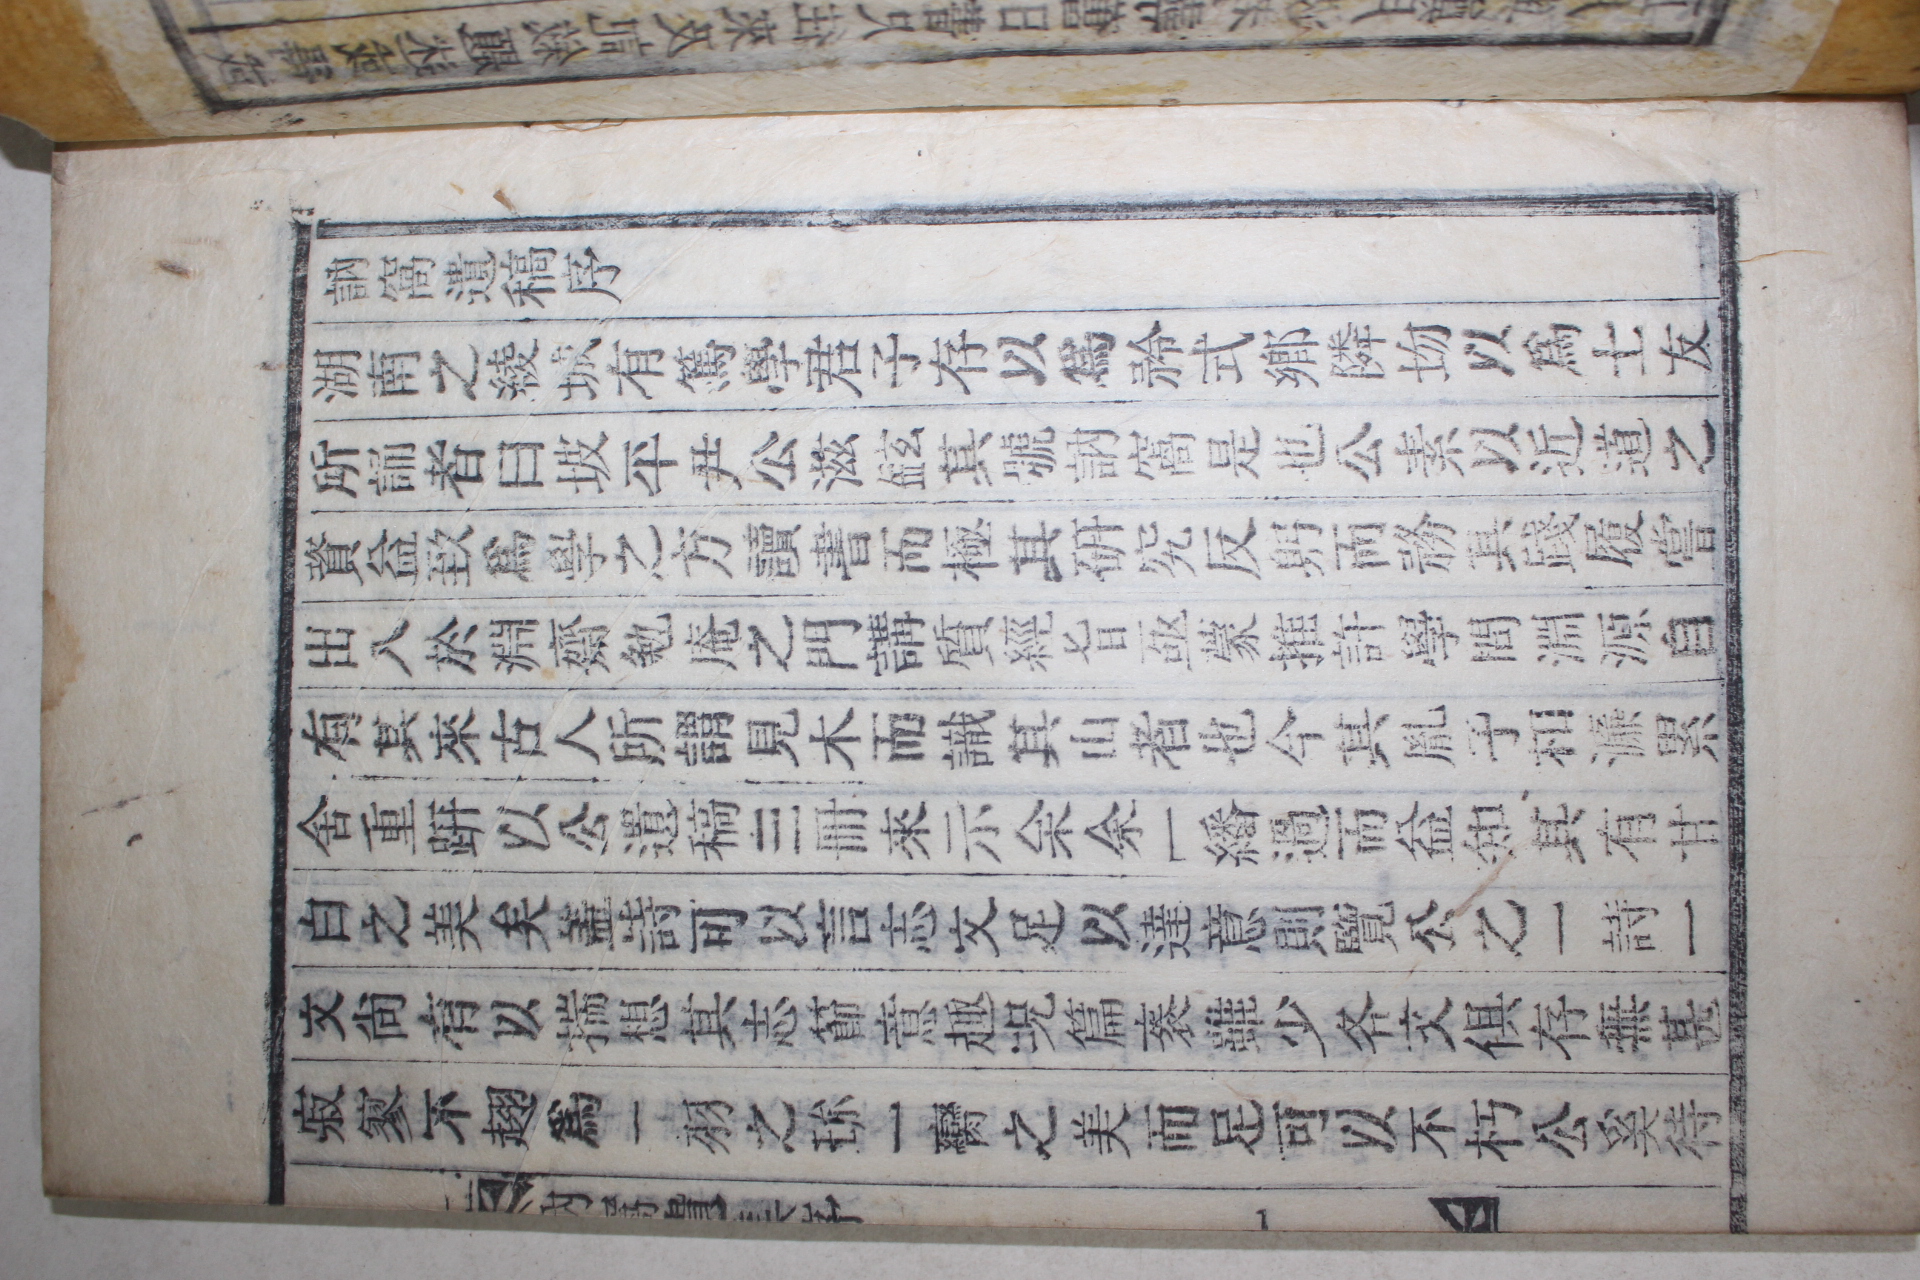 訥窩遺稿序
湖南之綾城有篤學君子存以爲矜式鄉隣歾以爲士友
所誦者曰坡平尹公滋鉉其號訥窩是也公素以近道之
資益致爲學之方讀書而極其硏究反躬而務其踐履嘗
出入於淵齋勉庵之門講質經旨亟蒙推許學問淵源自
有其來古人所謂見木而識其山者也今其胤子相濂累
舍重趼以公遺稿三冊來示余余一繙過而益知其有甘
白之美矣蓋詩可以言志文足以達意則覽公之一詩一
文尙有以揣想其志節意趣況篇袠雖少各文俱存無甚
寂寥不翅爲一羽之珍一臠之美而足可以不朽公奚待